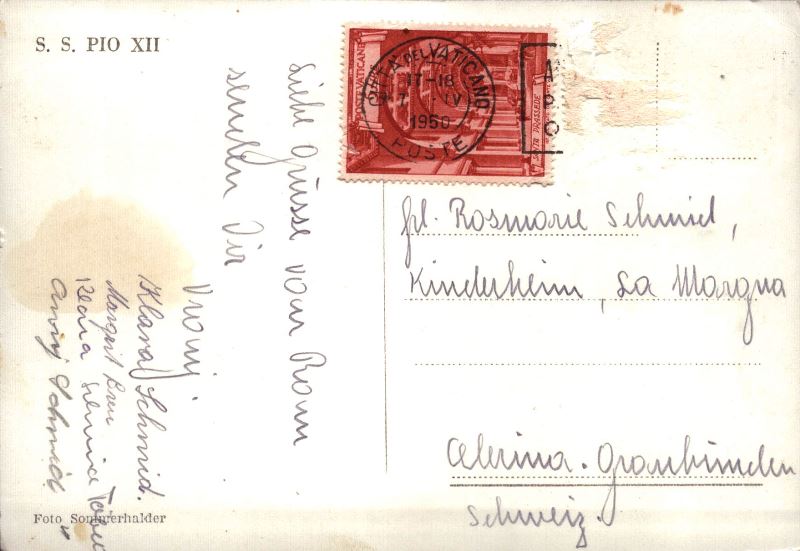 S. S. PIO XII
Liebe Grüsse vom Rom
senden Dir
Vroni
Klara Schmid.
Margrit
Klara
Schmid
Foto Sommerhalder
CITTA DEL VATICANO
17-18
7 IV
1950
POSTE
POSTE VATICANE
SANTA PRASSEDE
A
P
O
frl. Rosmarie Schmid,
Kinderheim, La Margna
Celerina. Graubünden
Schweiz.